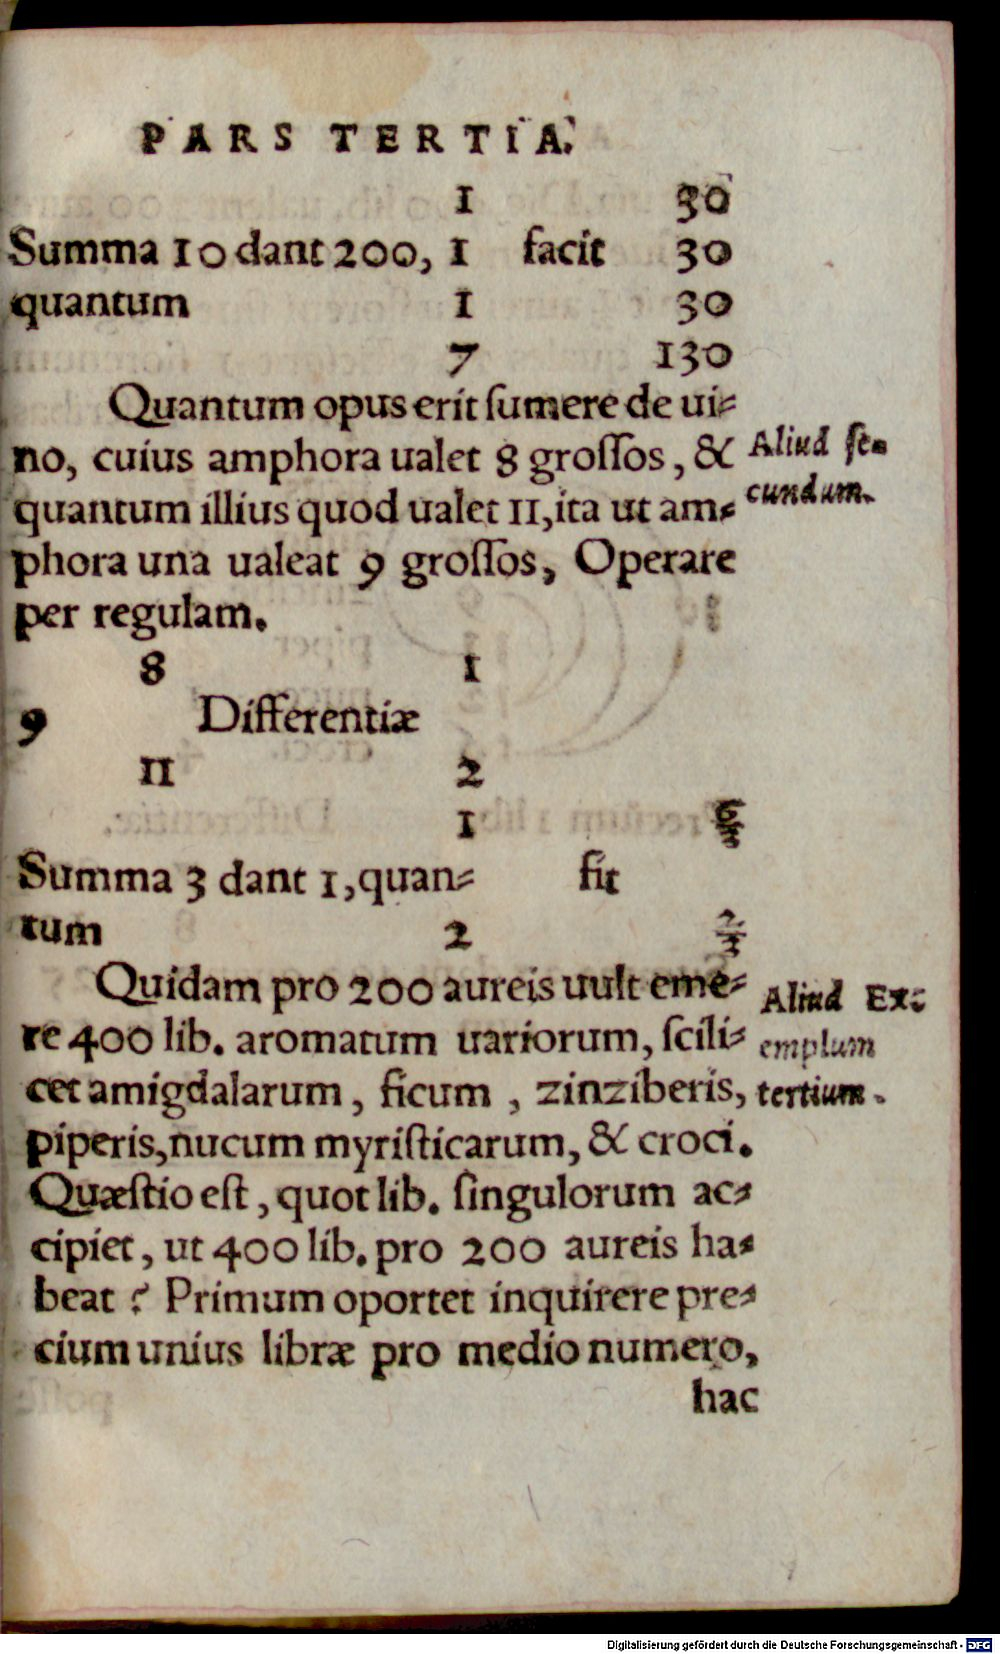 PARS TERTIA.
1 30
Summa 10 dant 200, 1 facit 30
quantum 1 30
7 130
Quantum opus erit ſumere de ui⸗
no, cuius amphora ualet 8 groſſos, &
quantum illius quod ualet 11, ita ut am⸗
phora una ualeat 9 groſſos, Operare
per regulam.
Aliud ſe⸗
cundum.
8 1
9 Differentiæ
11 2
1
Summa 3 dant 1, quan⸗ fit
tum 2 2/3
Quidam pro 200 aureis uult eme⸗
re 400 lib. aromatum uariorum, ſcili⸗
cet amigdalarum, ficum, zinziberis,
piperis, nucum myriſticarum, & croci.
Quæſtio eſt, quot lib. ſingulorum ac⸗
cipiet, ut 400 lib. pro 200 aureis ha⸗
beat? Primum oportet inquirere pre⸗
cium unius libræ pro medio numero,
hac
Aliud Ex⸗
emplum
tertium.
Digitalisierung gefördert durch die Deutsche Forschungsgemeinschaft - DFG